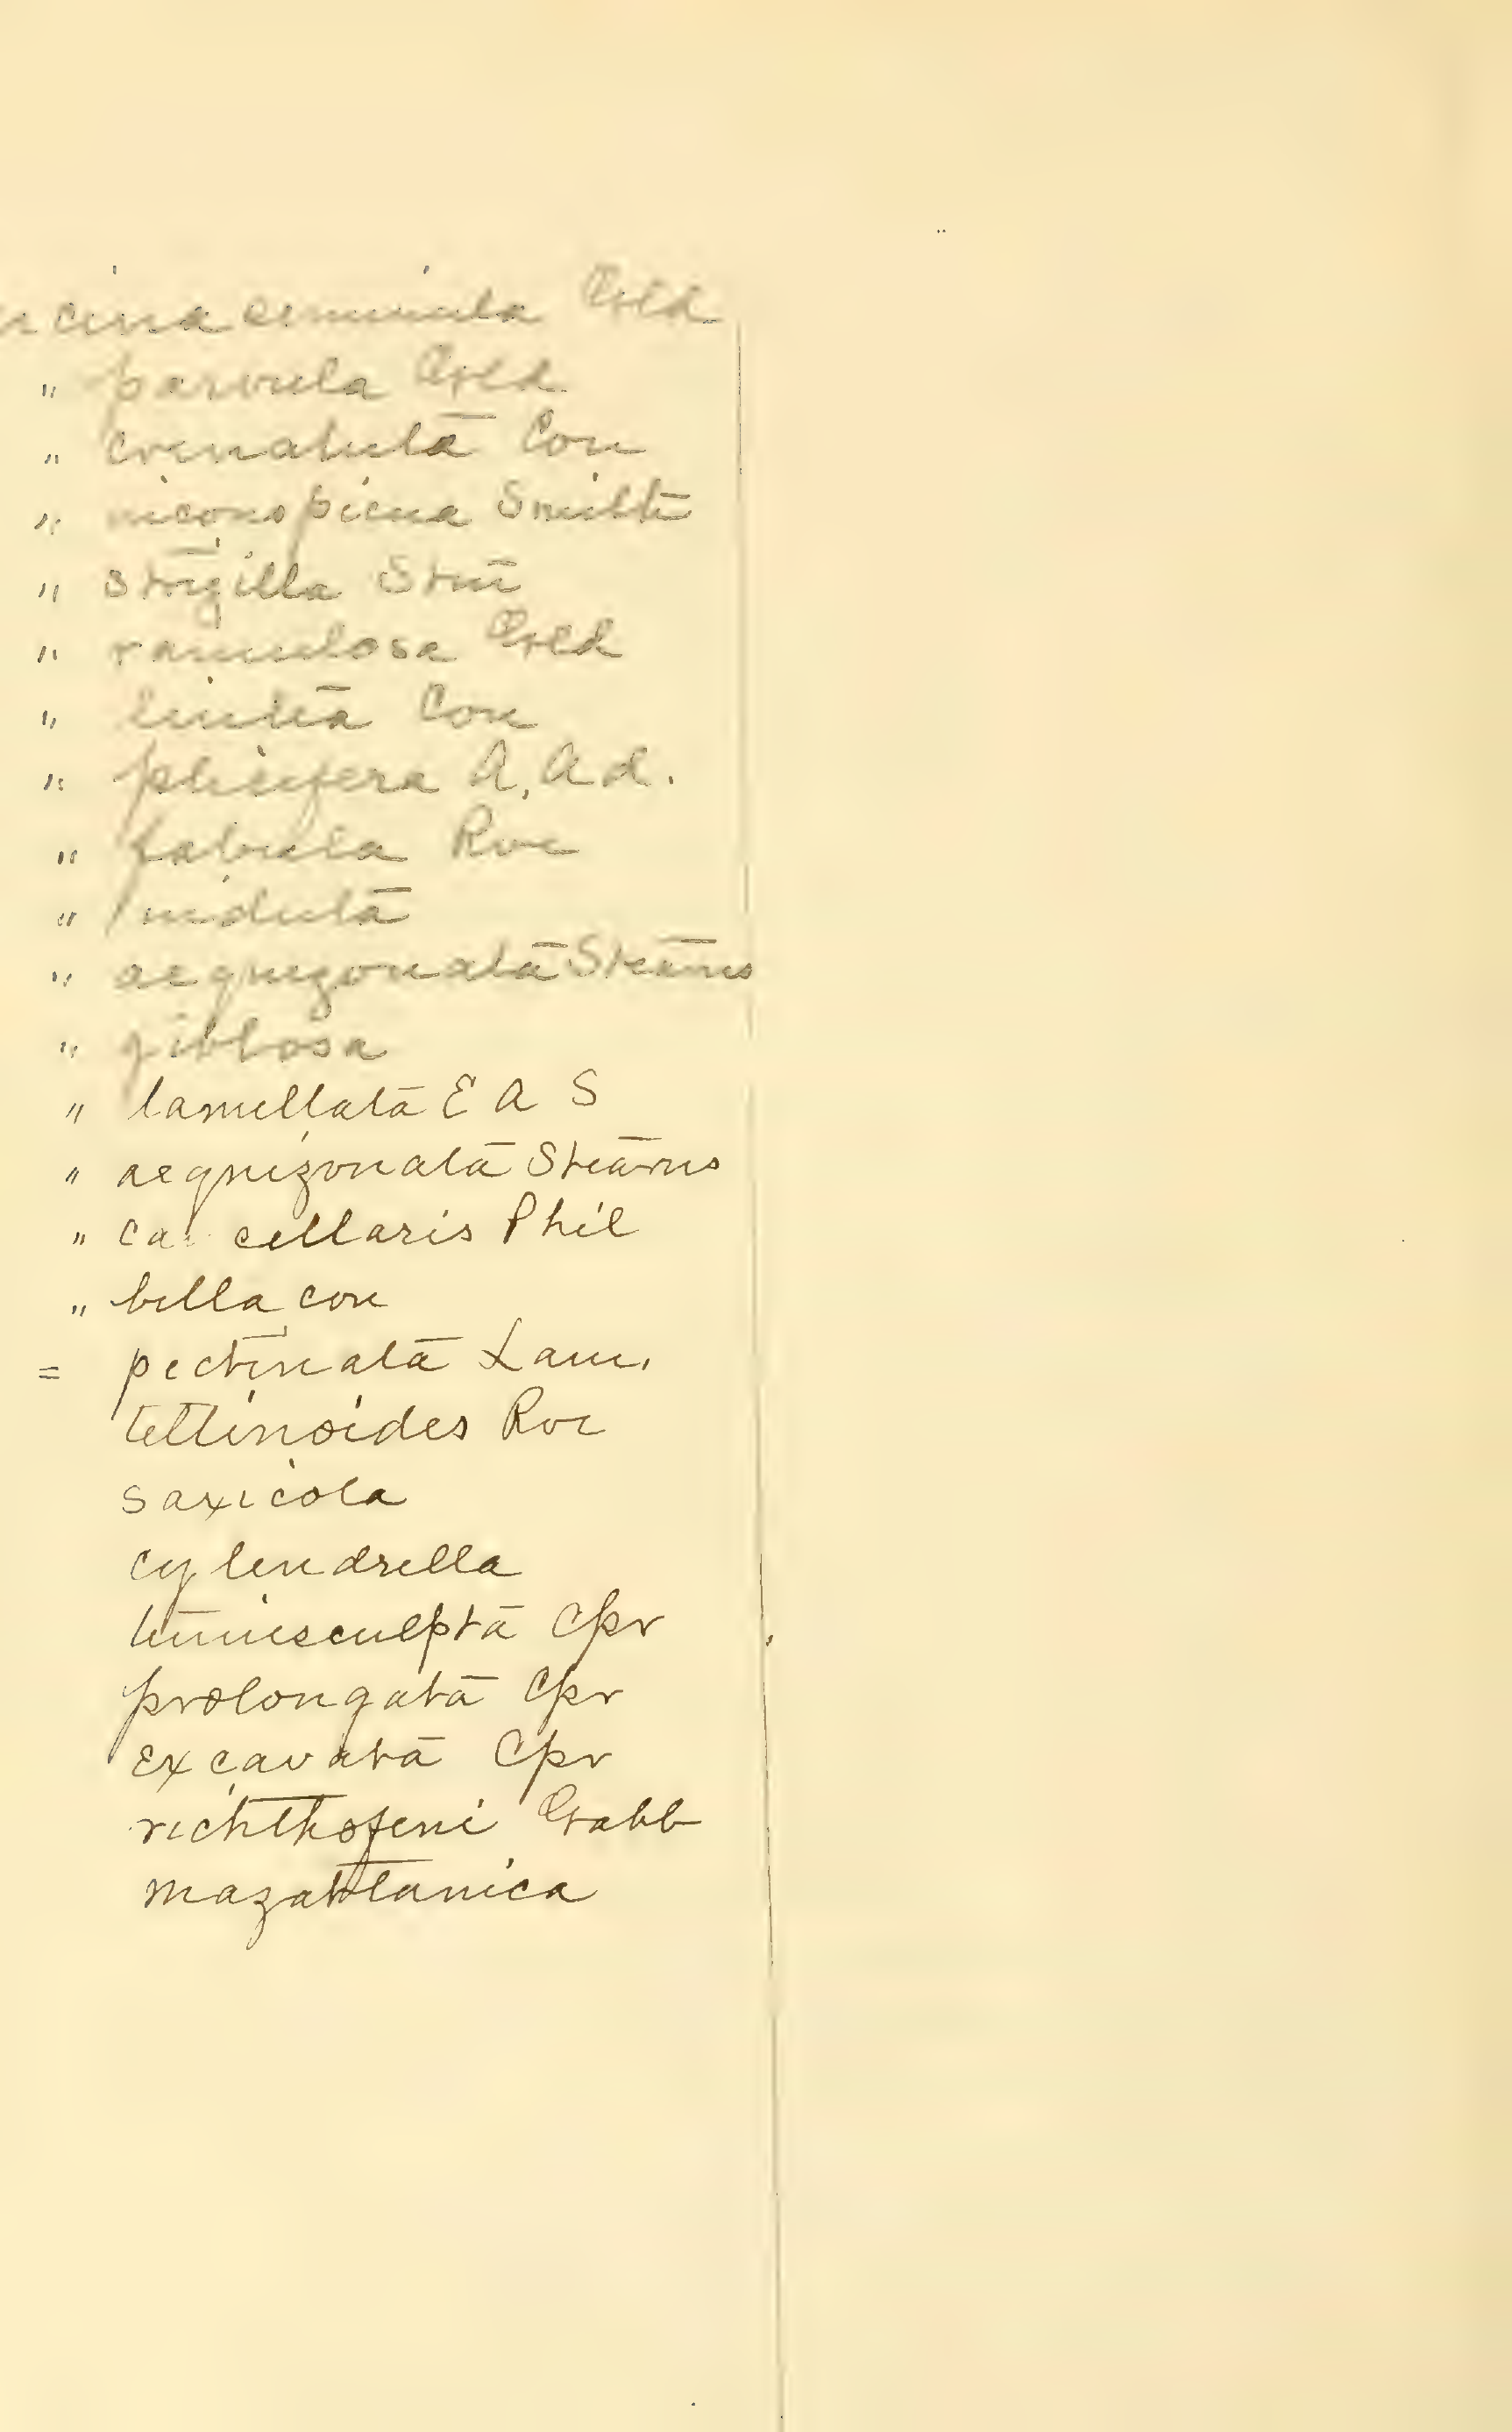 ucina eminula Gld
" parvula Gld
" crenatula Con
" inconspicua Smith
" strigilla Stm
" ramulosa Gld
" lintea Con
" plicifera A, Ad.
" fabula Rve
" undula
" aequizonata Stearns
" gibbosa
" lamellata E A S
" aequizonata Stearns
" ca cellaris Phil
" bella con
= pectinata Lam.
tellinoides Rve
saxicola
cylindrella
tenuisculpta Cpr
prolongata Cpr
excavata Cpr
richthofeni Gabb
mazatlanica